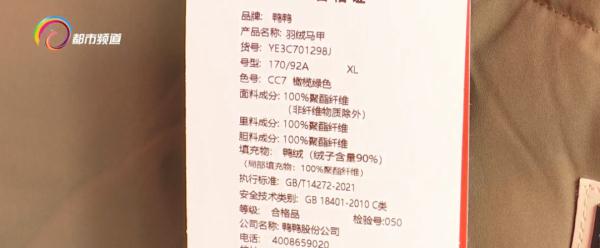 都市频道
合格证
品牌: 鸭鸭
产品名称: 羽绒马甲
货号: YE3C701298J
号型: 170/92A XL
色号: CC7 橄榄绿色
面料成分: 100%聚酯纤维
(非纤维物质除外)
里料成分: 100%聚酯纤维
胆料成分: 100%聚酯纤维
填充物: 鸭绒 (绒子含量90%)
(局部填充物: 100%聚酯纤维)
执行标准: GB/T14272-2021
安全技术类别: GB 18401-2010 C类
等级: 合格品 检验号:050
公司名称: 鸭鸭股份公司
电话: 4008659020